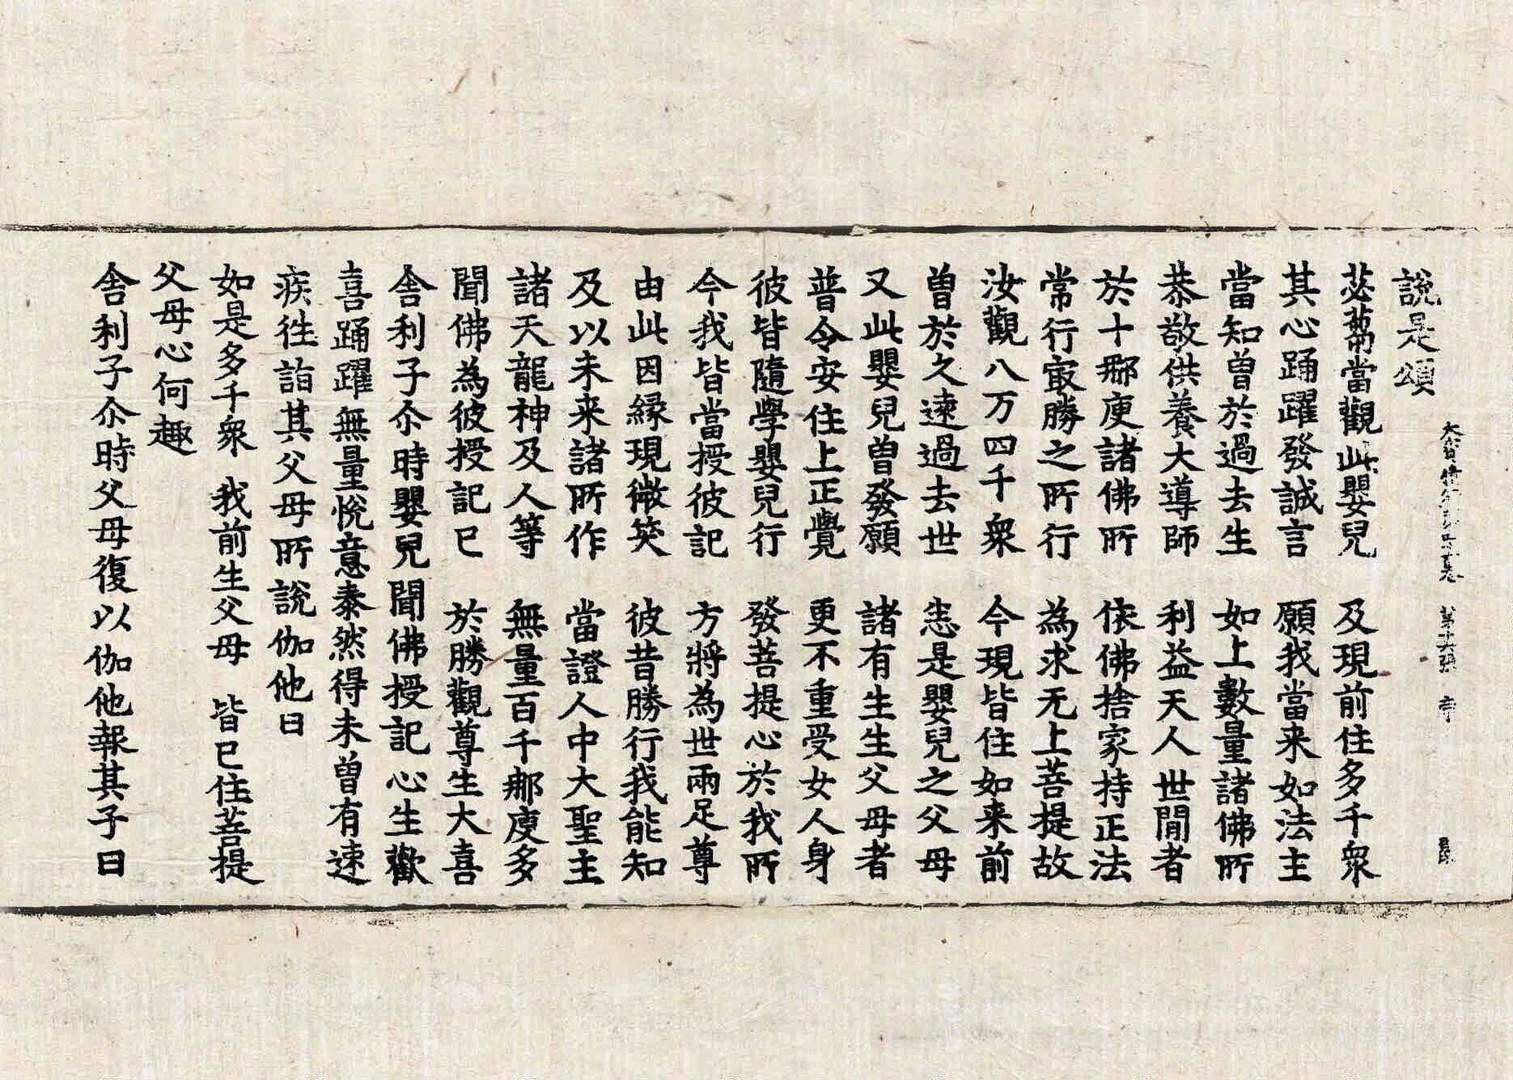 說是頌
苾蒭當觀此嬰兒　及現前住多千衆
其心踊躍發誠言　願我當来如法主
當知曽於過去生　如上數量諸佛所
恭敬供養大導師　利益天人世間者
於十那庾諸佛所　依佛捨家持正法
常行㝡勝之所行　為求无上菩提故
汝觀八万四千衆　今現皆住如来前
曽於久遠過去世　悉是嬰兒之父母
又此嬰兒曽發願　諸有生生父母者
普令安住上正覺　更不重受女人身
彼皆隨學嬰兒行　發菩提心於我所
今我皆當授彼記　方將為世兩足尊
由此因緣現微笑　彼昔勝行我能知
及以未来諸所作　當證人中大聖主
諸天龍神及人等　無量百千那庾多
聞佛為彼授記已　於勝觀尊生大喜
舎利子尒時嬰兒聞佛授記心生歡
喜踊躍無量悅意泰然得未曽有速
疾往詣其父母所說伽他曰
如是多千衆　我前生父母　皆已住菩提
父母心何趣
舎利子尒時父母復以伽他報其子曰